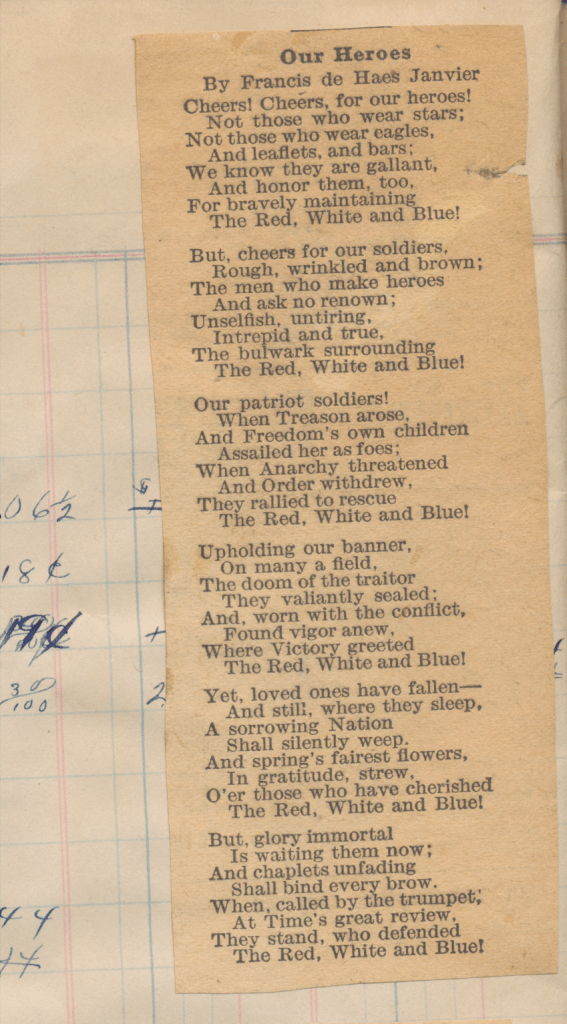 Our Heroes
By Francis de Haes Janvier
Cheers! Cheers, for our heroes!
Not those who wear stars;
Not those who wear eagles,
And leaflets, and bars;
We know they are gallant,
And honor them, too,
For bravely maintaining
The Red, White and Blue!
But, cheers for our soldiers,
Rough, wrinkled and brown;
The men who make heroes
And ask no renown;
Unselfish, untiring,
Intrepid and true,
The bulwark surrounding
The Red, White and Blue!
Our patriot soldiers!
When Treason arose,
And Freedom's own children
Assailed her as foes;
When Anarchy threatened
And Order withdrew,
They rallied to rescue
The Red, White and Blue!
Upholding our banner,
On many a field,
The doom of the traitor
They valiantly sealed;
And, worn with the conflict,
Found vigor anew,
Where Victory greeted
The Red, White and Blue!
Yet, loved ones have fallen—
And still, where they sleep,
A sorrowing Nation
Shall silently weep.
And spring's fairest flowers,
In gratitude, strew,
O'er those who have cherished
The Red, White and Blue!
But, glory immortal
Is waiting them now;
And chaplets unfading
Shall bind every brow.
When, called by the trumpet,
At Time's great review,
They stand, who defended
The Red, White and Blue!
06½
18¢
19¢ +
30/100 2
44